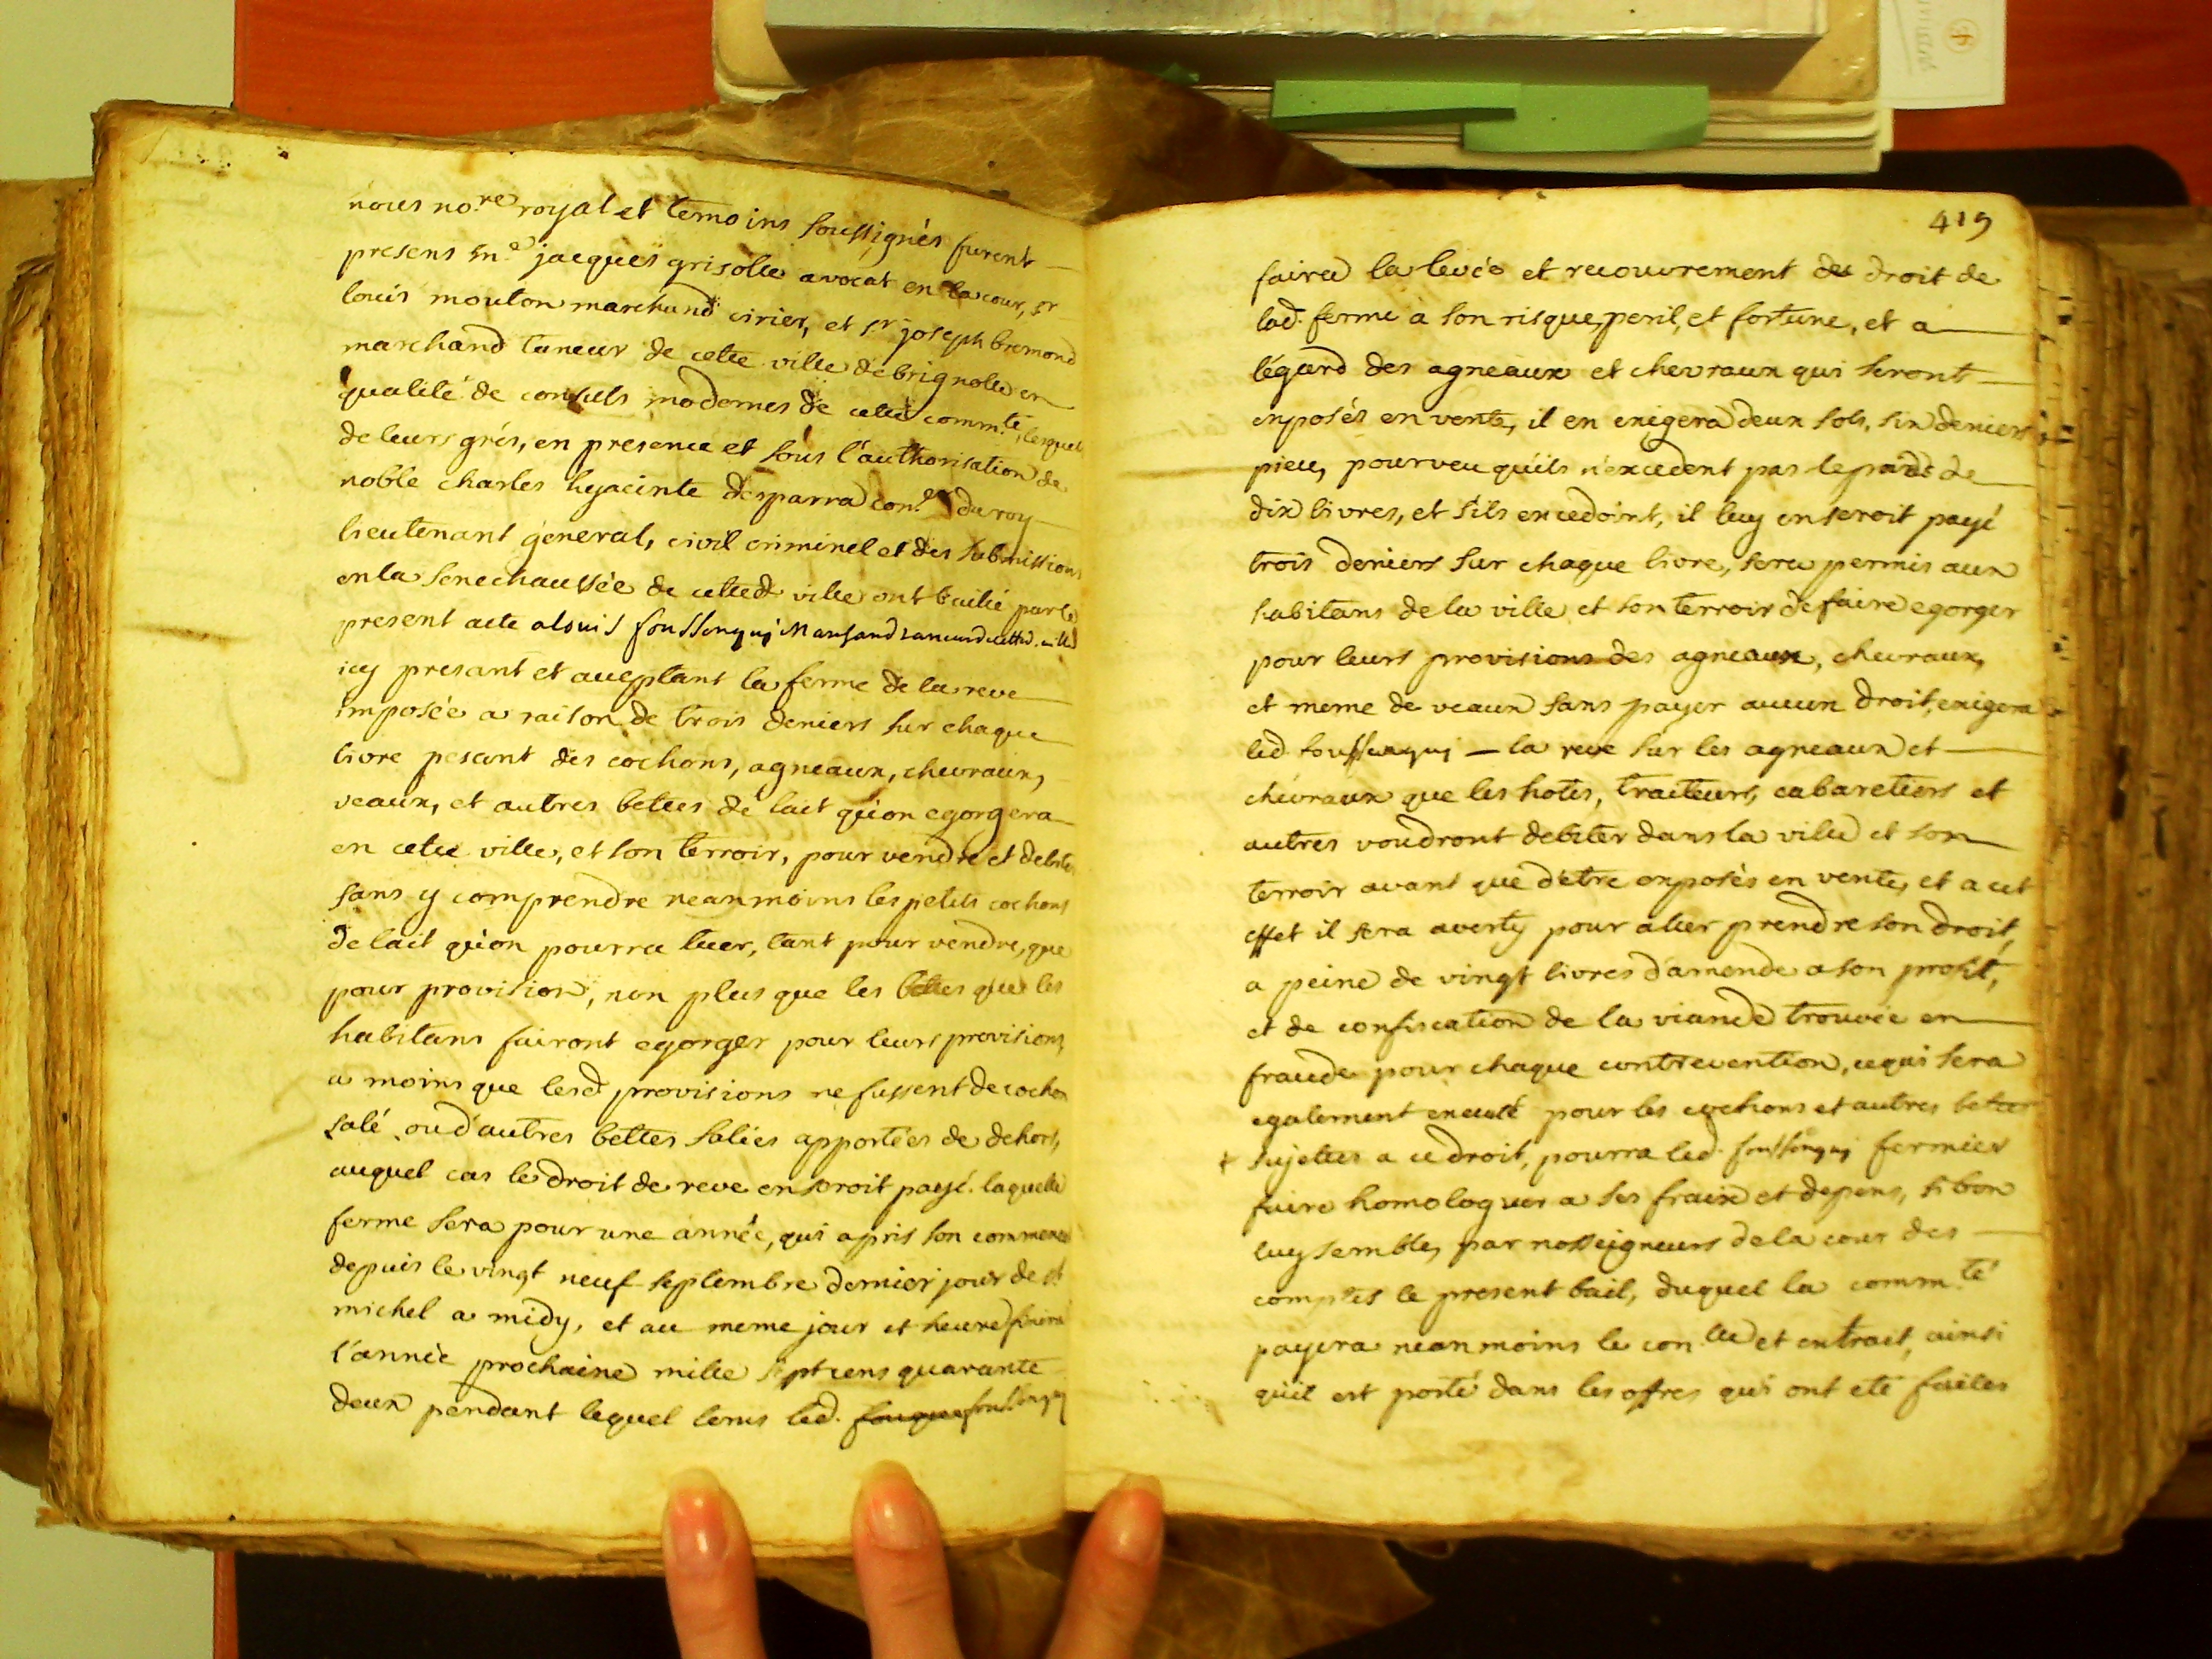 nous no.re royal et temoins soussignés furent
presens m.e jacques grisolle avocat en la cour, sr
louis mouton marchand cirier, et sr joseph bremond
marchand taneur de cette ville de brignolle en
qualité de consuls modernes de cette comm.té, lesquels
de leurs grés, en presence et sous l'authorisation de
noble charles hyacinte desparra con.er du roy
lieutenant general, civil criminel et des submissions
en la senechaussée de cetted ville ont bailié par le
present acte a louis foussenquj Marchand taneur de cette d. ville
icy presant et aceptant la ferme de la reve
imposée a raison de trois deniers sur chaque
livre pesant des cochons, agneaux, chevraux,
veaux, et autres bettes de lait qu'on egorgera
en cette ville, et son terroir, pour vendre et debiter
sans y comprendre neanmoins les petits cochons
de lait qu'on pourra tuer, tant pour vendre, que
pour provision, non plus que les bettes que les
habitans fairont egorger pour leurs provisions,
a moins que lesd provisions ne fussent de cochon
salé, ou d'autres bettes salées apportées de dehors,
auquel cas le droit de reve en seroit payé. laquelle
ferme sera pour une année, qui a pris son commence
depuis le vingt neuf septembre dernier jour de st
michel a midy, et au meme jour et heure finira
l'année prochaine mille sept cens quarante
deux pendant lequel tems led. fouque foussenquj
419
faire la levée et recouvrement des droit de
lad. ferme a son risque, peril, et fortune, et a
l'égard des agneaux et chevraux qui seront
exposés en vente, il en exigera deux sols, six deniers
piece, pourveu qu'ils n'excedent pas le poids de
dix livres, et s'ils excedoint, il luy en seroit payé
trois deniers sur chaque livre, sera permis aux
habitans de la ville et son terroir de faire egorger
pour leurs provisions des agneaux, chevraux,
et meme de veaux sans payer aucun droit, exigera
led. foussenquj — la reve sur les agneaux et
chévraux que les hotes, traiteurs, cabaretiers et
autres voudront debiter dans la ville et son
terroir avant que d'etre exposés en vente, et a cet
effet il sera averty pour aller prendre son droit,
a peine de vingt livres d'amende a son profit,
et de confiscation de la viande trouvée en
fraude pour chaque contrevention, ce qui sera
egalement executé pour les cochons et autres bettes
+ sujettes a ce droit, pourra led. foussenquj fermier
faire homologuer a ses fraix et depens, si bon
luy semble, par nosseigneurs de la cour des
comptes le present bail, duquel la comm.té
payera neanmoins le con.lle et extrait, ainsi
qu'il est porté dans les offres qui ont eté faites